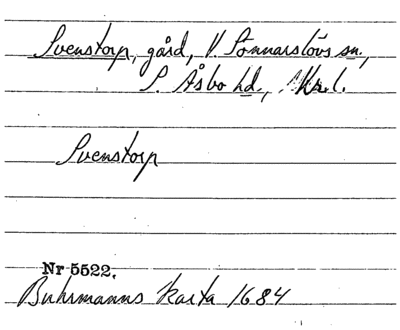 Svenstorp, gård, V. Sönnarslövs sn.,
S. Åsbo hd., Kr. l.
Svenstorp
Nr 5522.
Buhrmanns karta 1684